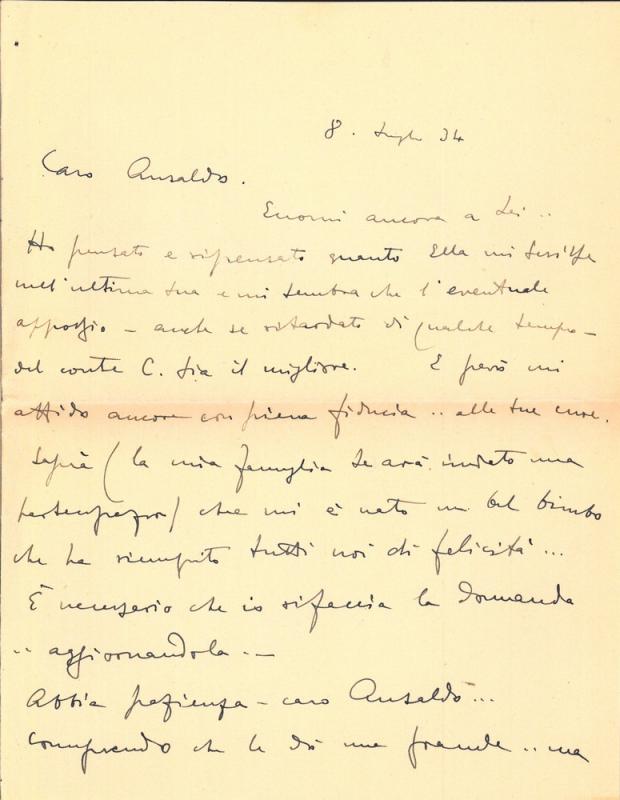 8. Luglio 34
Caro Ansaldo.
Eccomi ancora a Lei..
Ho pensato e ripensato quanto Ella mi scrisse
nell'ultima sua e mi sembra che l'eventuale
appoggio - anche se ritardato di qualche tempo -
del conte C. sia il migliore. E però mi
affido ancora con piena fiducia.. alle sue cure.
Saprà (la mia famiglia le avrà inviato una
partecipazione) che mi è nato un bel bimbo
che ha riempito tutti noi di felicità...
È necessario che io rifaccia la domanda
.. aggiornandola. -
Abbia pazienza - caro Ansaldo...
Comprendo che le dò una grande.. ma